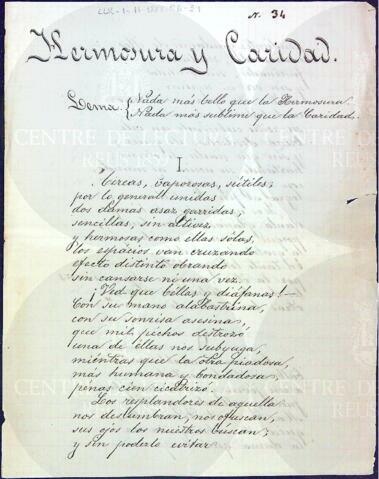 N. 34
Hermosura y Caridad.
Lema. { Nada más bello que la Hermosura
Nada mas sublime que la Caridad.
CENTRE DE LECTURA
REUS 1859
I.
Aereas, vaporosas, sútiles;
por lo general unidas
dos damas asaz garridas,
sencillas, sin altivez,
y hermosas como ellas sólas,
los espacios van cruzando
efecto distinto obrando
sin cansarse ni una vez.
¡Ved que bellas y diáfanas!—
Con su mano alabastrina,
con su sonrisa asesina,
que mil pechos destrozó
una de ellas nos subyuga,
mientras que la otra piadosa,
más humana y bondadosa
penas cien cicatrizó.
Los resplandores de aquella
nos deslumbran, nos ofuscan,
sus ojos los nuestros buscan,
y sin poderlo evitar